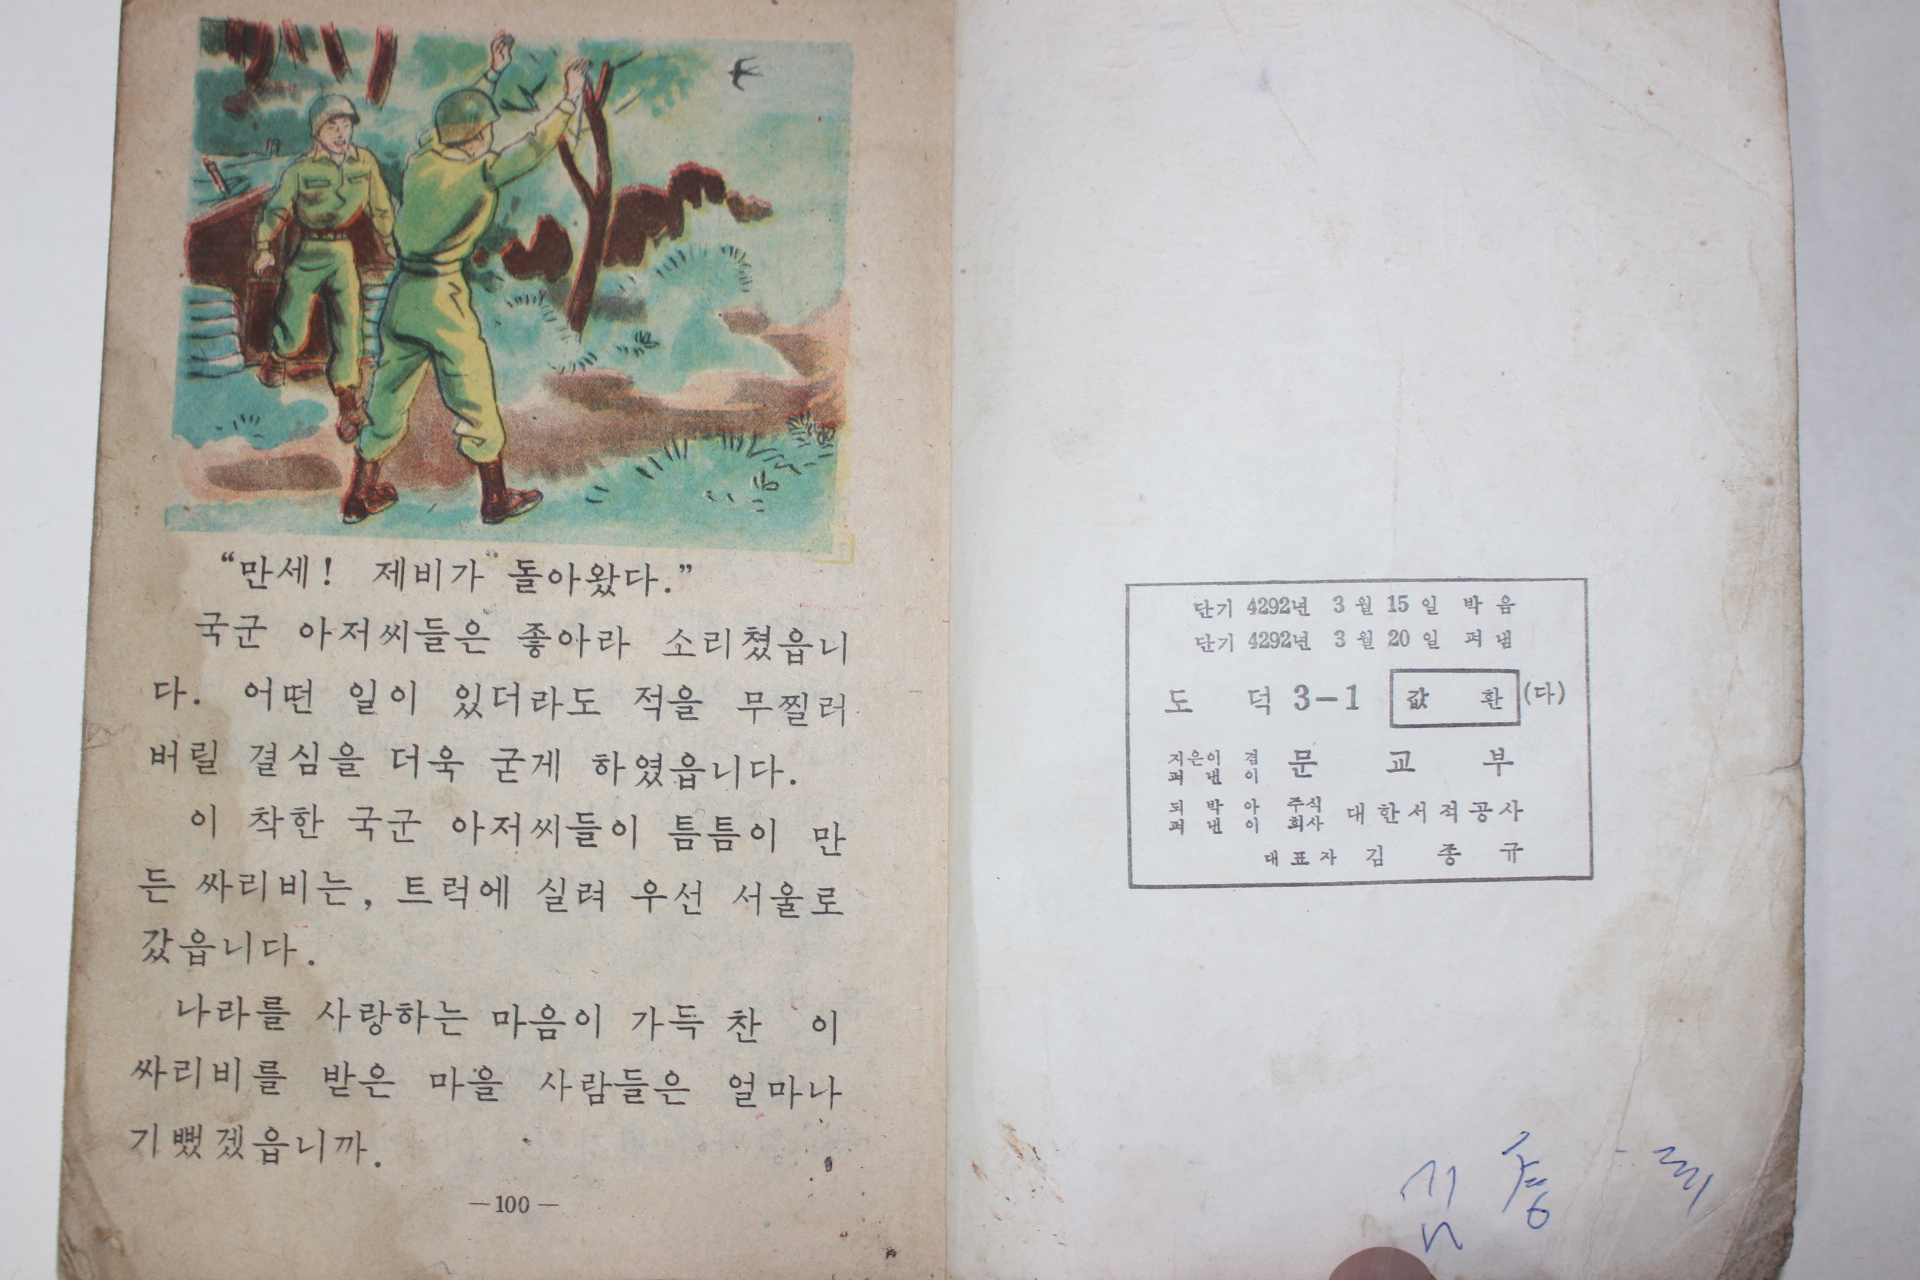 “만세! 제비가 돌아왔다.”
국군 아저씨들은 좋아라 소리쳤읍니
다. 어떤 일이 있더라도 적을 무찔러
버릴 결심을 더욱 굳게 하였읍니다.
이 착한 국군 아저씨들이 틈틈이 만
든 싸리비는, 트럭에 실려 우선 서울로
갔읍니다.
나라를 사랑하는 마음이 가득 찬 이
싸리비를 받은 마을 사람들은 얼마나
기뻤겠읍니까.
—100—
단기 4292년 3월 15일 박음
단기 4292년 3월 20일 펴냄
도 덕 3-1 값 환 (다)
지은이 겸 펴낸이 문 교 부
되박아 펴낸이 주식회사 대한서적공사
대표자 김 종 규
김종